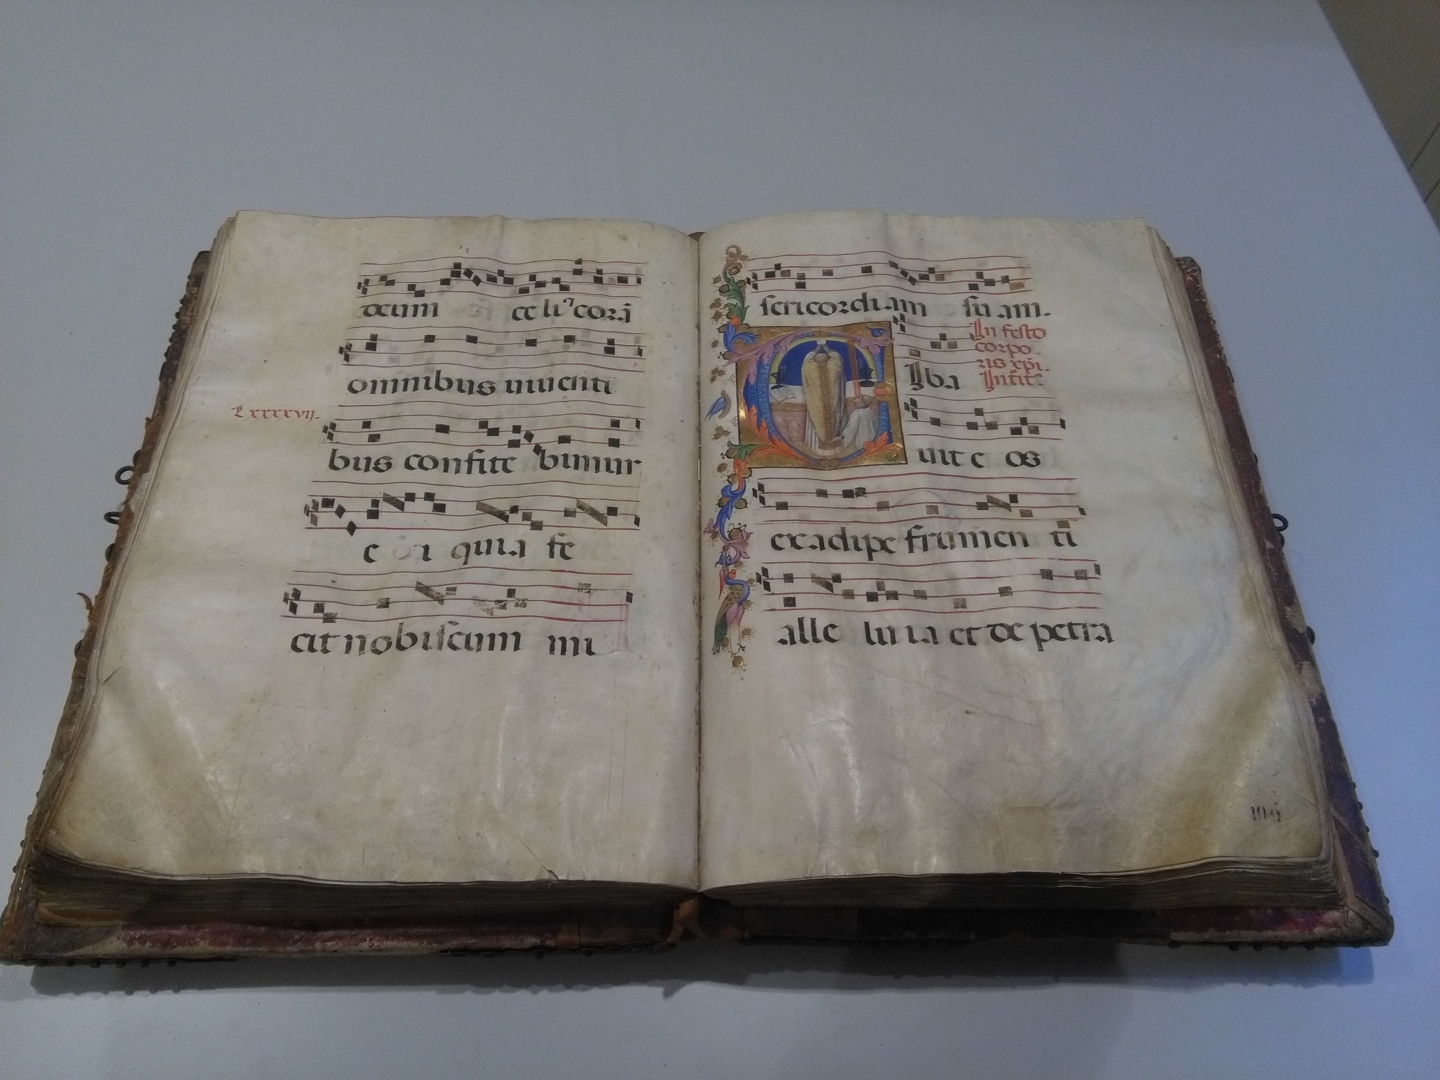 deum celi ⁊ corā
omnibus uiuenti
Lxxxxvij.
bus confite bimur
e i quia fe
cit nobiscum mi
sericordiam suam.
In festo
corpo
ris xp̄i.
Introit
Iba
uit e os
ex adipe frumen ti
alle lu ia et de petra
109